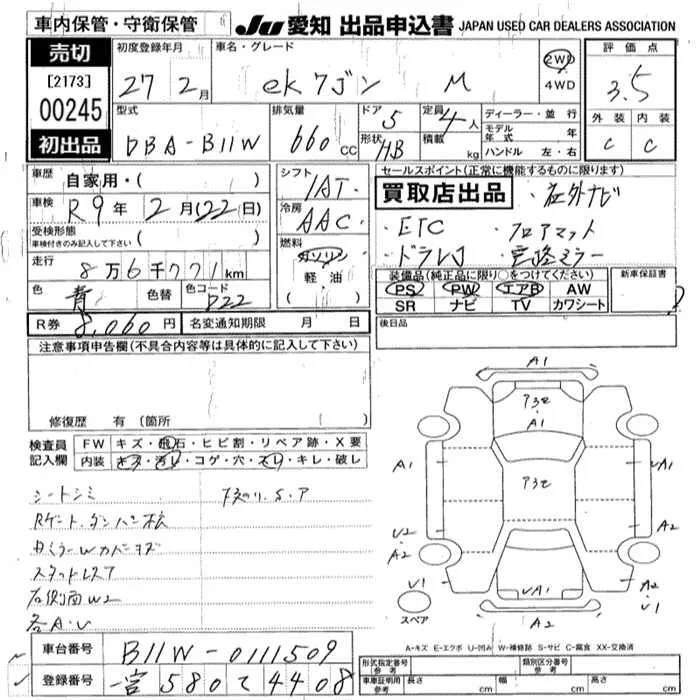 車内保管・守衛保管
JU 愛知 出品申込書 JAPAN USED CAR DEALERS ASSOCIATION
売切
[2173]
00245
初出品
初度登録年月
27 年 2月
車名・グレード
ekワゴン M
2WD
4WD
評価点
3.5
外装 内装
C C
型式
DBA-B11W
排気量
660 cc
ドア 5
形状 HB
定員 4人
積載 kg
ディーラー・並行
モデル年式 年
ハンドル 左・右
車歴 自家用・( )
車検 R9年 2月(22日)
受検形態
車検付きのみ記入して下さい ( )
走行 8万6千771km
色 青 色替 色コード D22
R券 8,060円 名変通知期限 月 日
シフト
IAT
冷房
AAC
燃料
ガソリン
軽油
セールスポイント(正常に機能するものに限ります)
買取店出品 ・社外ナビ
・ETC ・フロアマット
・ドラレコ
装備品(純正品に限り○をつけてください)
PS PW エアB AW
SR ナビ TV カワシート
新車保証書
後日品
注意事項申告欄(不具合内容等は具体的に記入して下さい)
修復歴 有 (箇所
検査員記入欄
FW キズ・飛石・ヒビ割・リペア跡・X要
内装 キズ・汚れ・コゲ・穴・スレ・キレ・破レ
シートシミ 下廻り.S.ア
Rゲート.
スタッドレス7
右側面W2
各A.U
A1
アヨセ
A1
アヨセ
A1
A1
U2
A2
A2
U1
UA1
A2
A2
U1
スペア
A-キズ E-エクボ U-凹み W-補修跡 S-サビ C-腐食 XX-交換済
車台番号 B11W-0111509
登録番号 580 て 4408
形式指定番号 参考
類別区分番号 参考
車庫証明用参考 長さ cm 幅 cm 高さ cm